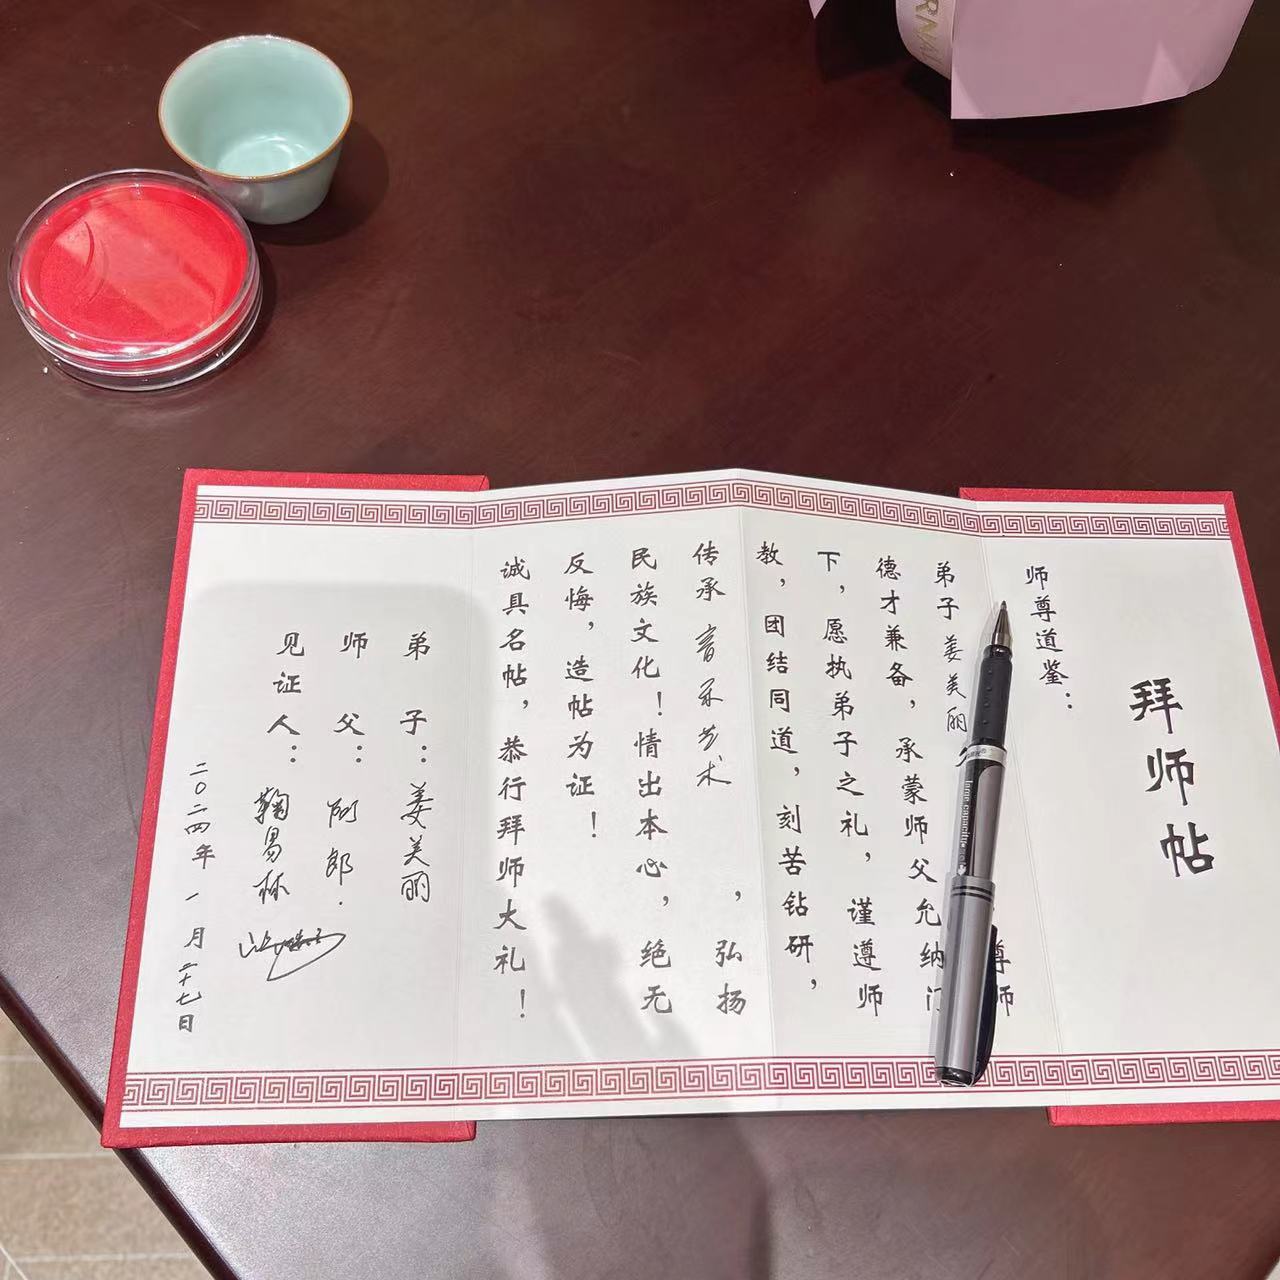 拜师帖
师尊道鉴：
弟子姜美丽
尊师
德才兼备，承蒙师父允纳门
下，愿执弟子之礼，谨遵师
教，团结同道，刻苦钻研，
传承音乐艺术，弘扬
民族文化！情出本心，绝无
反悔，造帖为证！
诚具名帖，恭行拜师大礼！
弟子：姜美丽
师父：阿郎.
见证人：鞠易林
二〇二四年一月二十七日